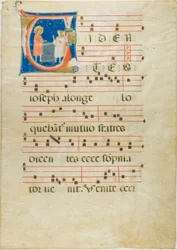 VIDEN
TES
ioseph a longe lo
quebant mutuo fratres
dicen tes ecce sompnia
tor ue nit. Venite occi